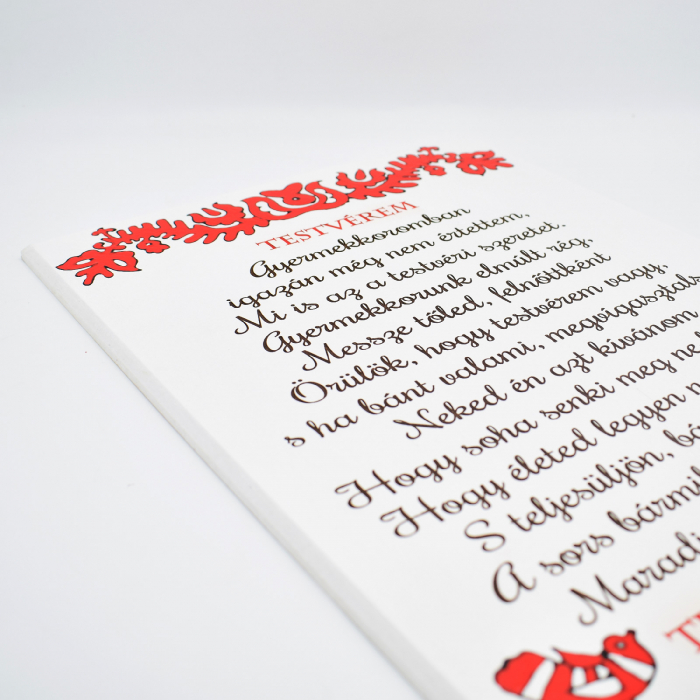 TESTVÉREM
Gyermekkoromban
igazán még nem értettem,
Mi is az a testvéri szeretet.
Gyermekkorunk elmúlt rég,
Messze tőled, felnőttként
Örülök, hogy testvérem vagy,
s ha bánt valami, megvigasztals
Neked én azt kívánom
Hogy soha senki meg ne
Hogy életed legyen
S teljesüljön,
A sors bármi
Maradj